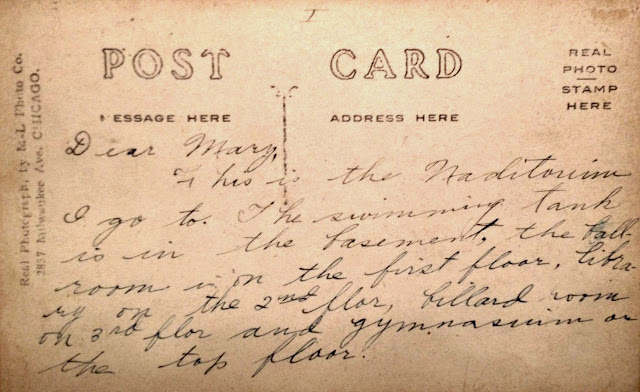 POST CARD
REAL
PHOTO
STAMP
HERE
MESSAGE HERE
ADDRESS HERE
Real Photograph, by R-L Photo Co.
2837 Milwaukee Ave. CHICAGO.
Dear Mary,
This is the Naditorium
I go to. The swimming tank
is in the basement, the ball
room is on the first floor, libra-
ry on the 2nd flor, billard room
on 3rd flor and gymnasium on
the top floor.